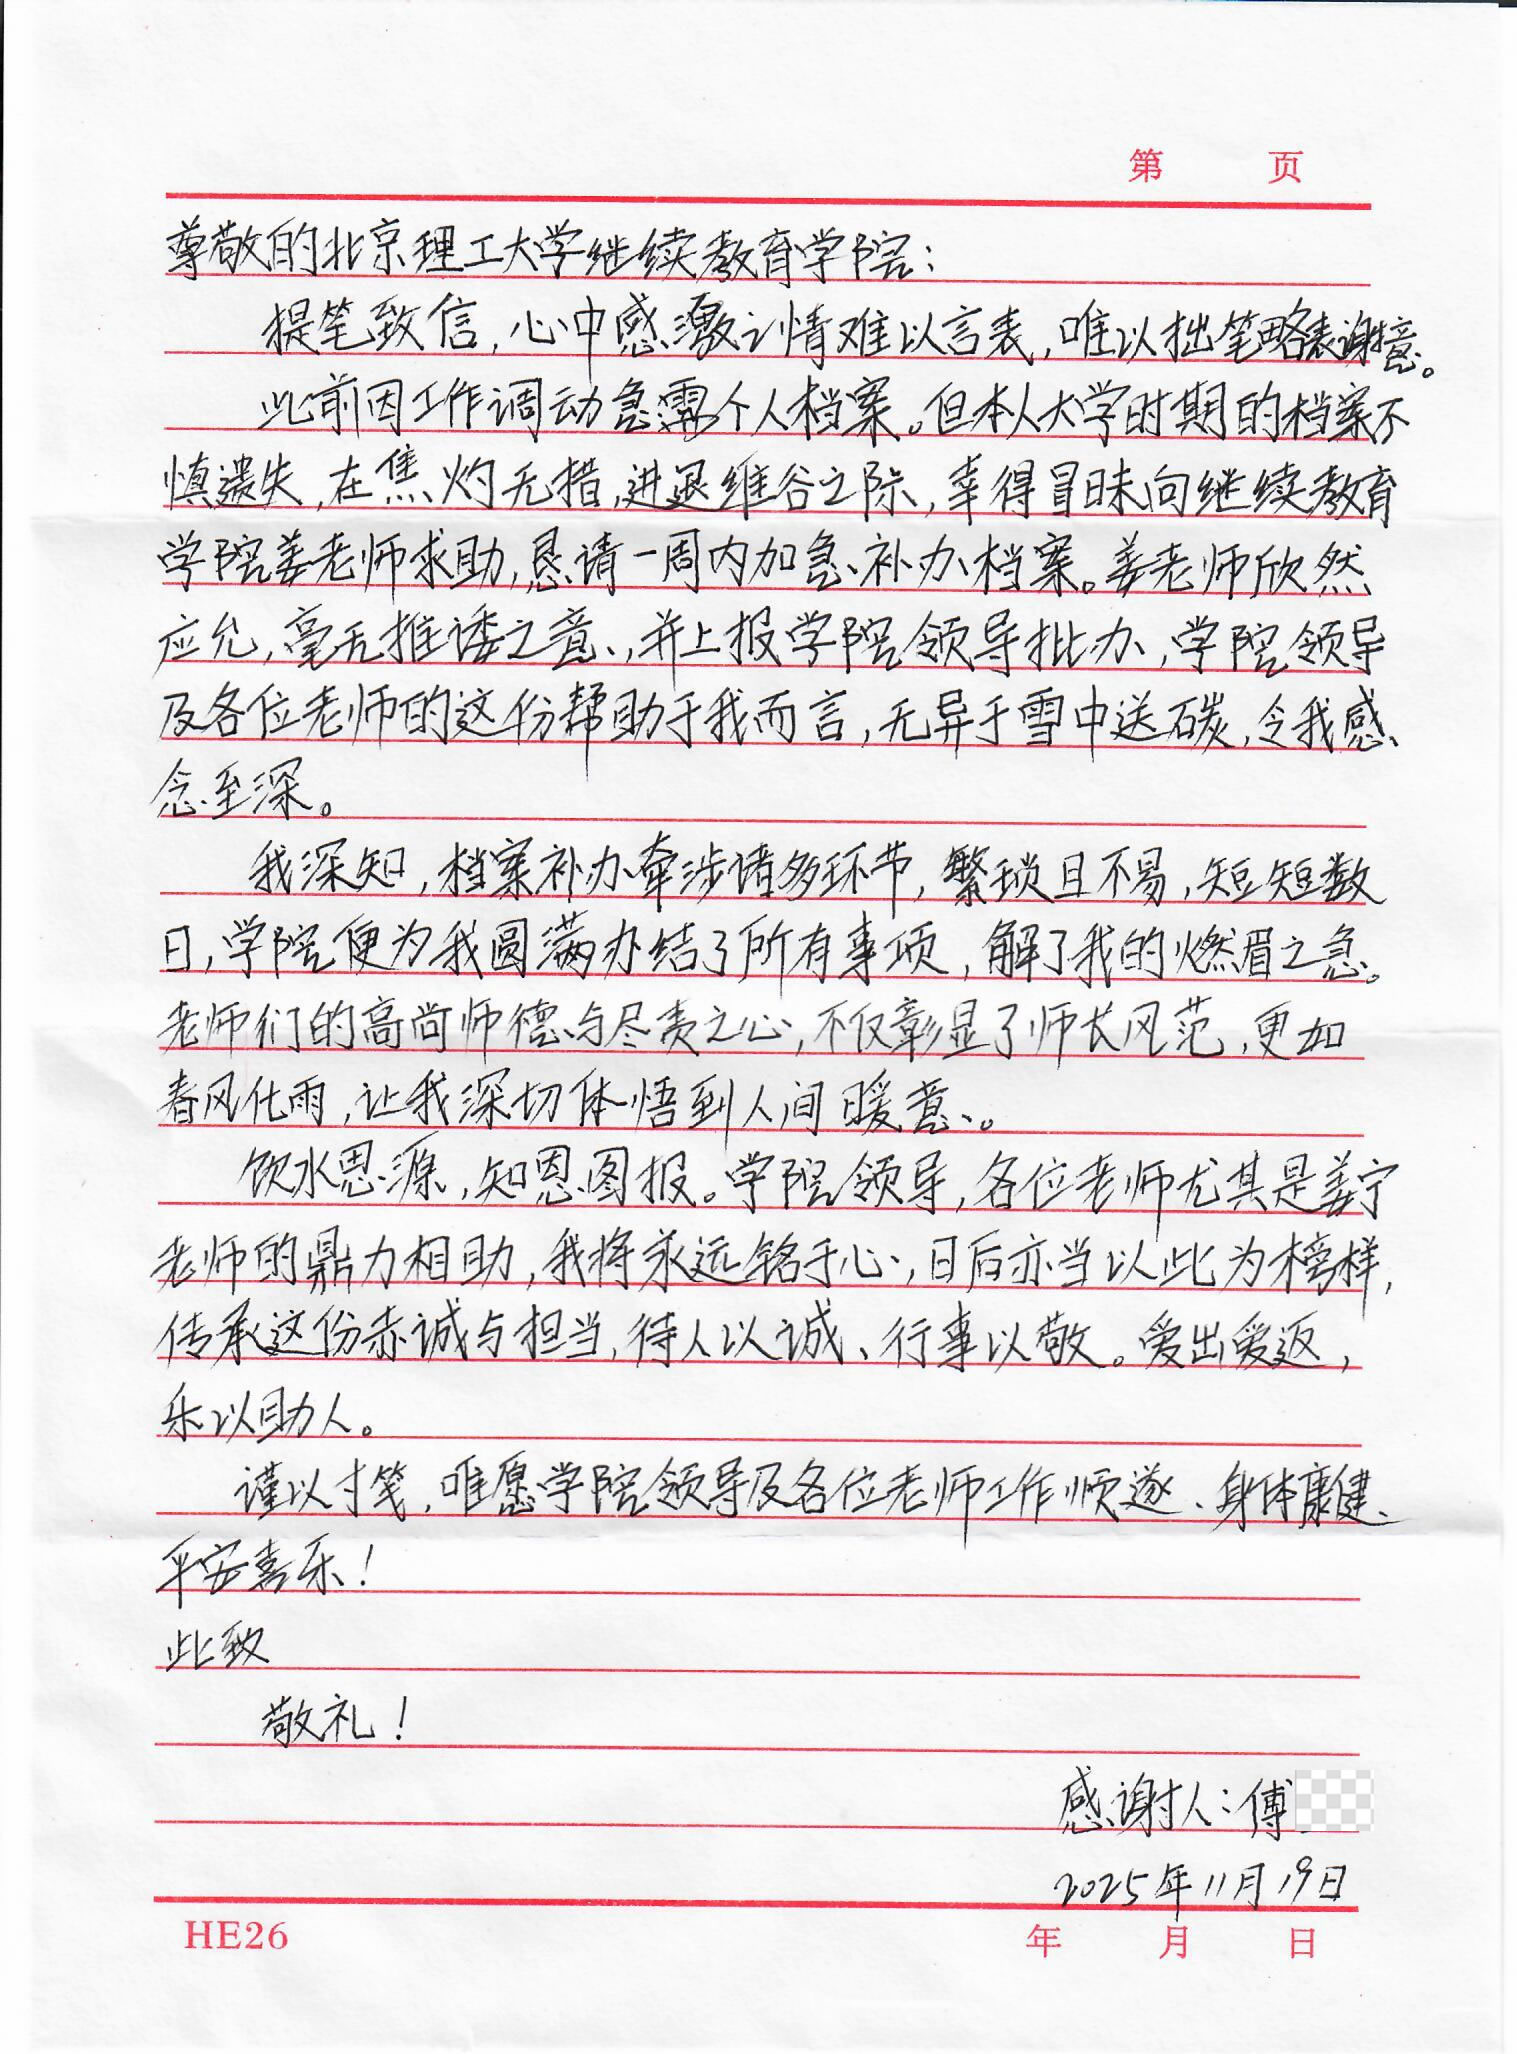 第 页
尊敬的北京理工大学继续教育学院：
提笔致信，心中感激之情难以言表，唯以拙笔略表谢意。
此前因工作调动急需个人档案。但本人大学时期的档案不
慎遗失，在焦灼无措，进退维谷之际，幸得冒昧向继续教育
学院姜老师求助，恳请一周内加急补办档案。姜老师欣然
应允，毫无推诿之意，并上报学院领导批办，学院领导
及各位老师的这份帮助于我而言，无异于雪中送碳，令我感
念至深。
我深知，档案补办牵涉诸多环节，繁琐且不易，短短数
日，学院便为我圆满办结了所有事项，解了我的燃眉之急。
老师们的高尚师德与尽责之心，不仅彰显了师长风范，更如
春风化雨，让我深切体悟到人间暖意。
饮水思源，知恩图报。学院领导，各位老师尤其是姜宁
老师的鼎力相助，我将永远铭于心，日后亦当以此为榜样，
传承这份赤诚与担当，待人以诚、行事以敬。爱出爱返，
乐以助人。
谨以寸笺，唯愿学院领导及各位老师工作顺遂、身体康健、
平安喜乐！
此致
敬礼！
感谢人：傅
2025年11月19日
HE26 年 月 日